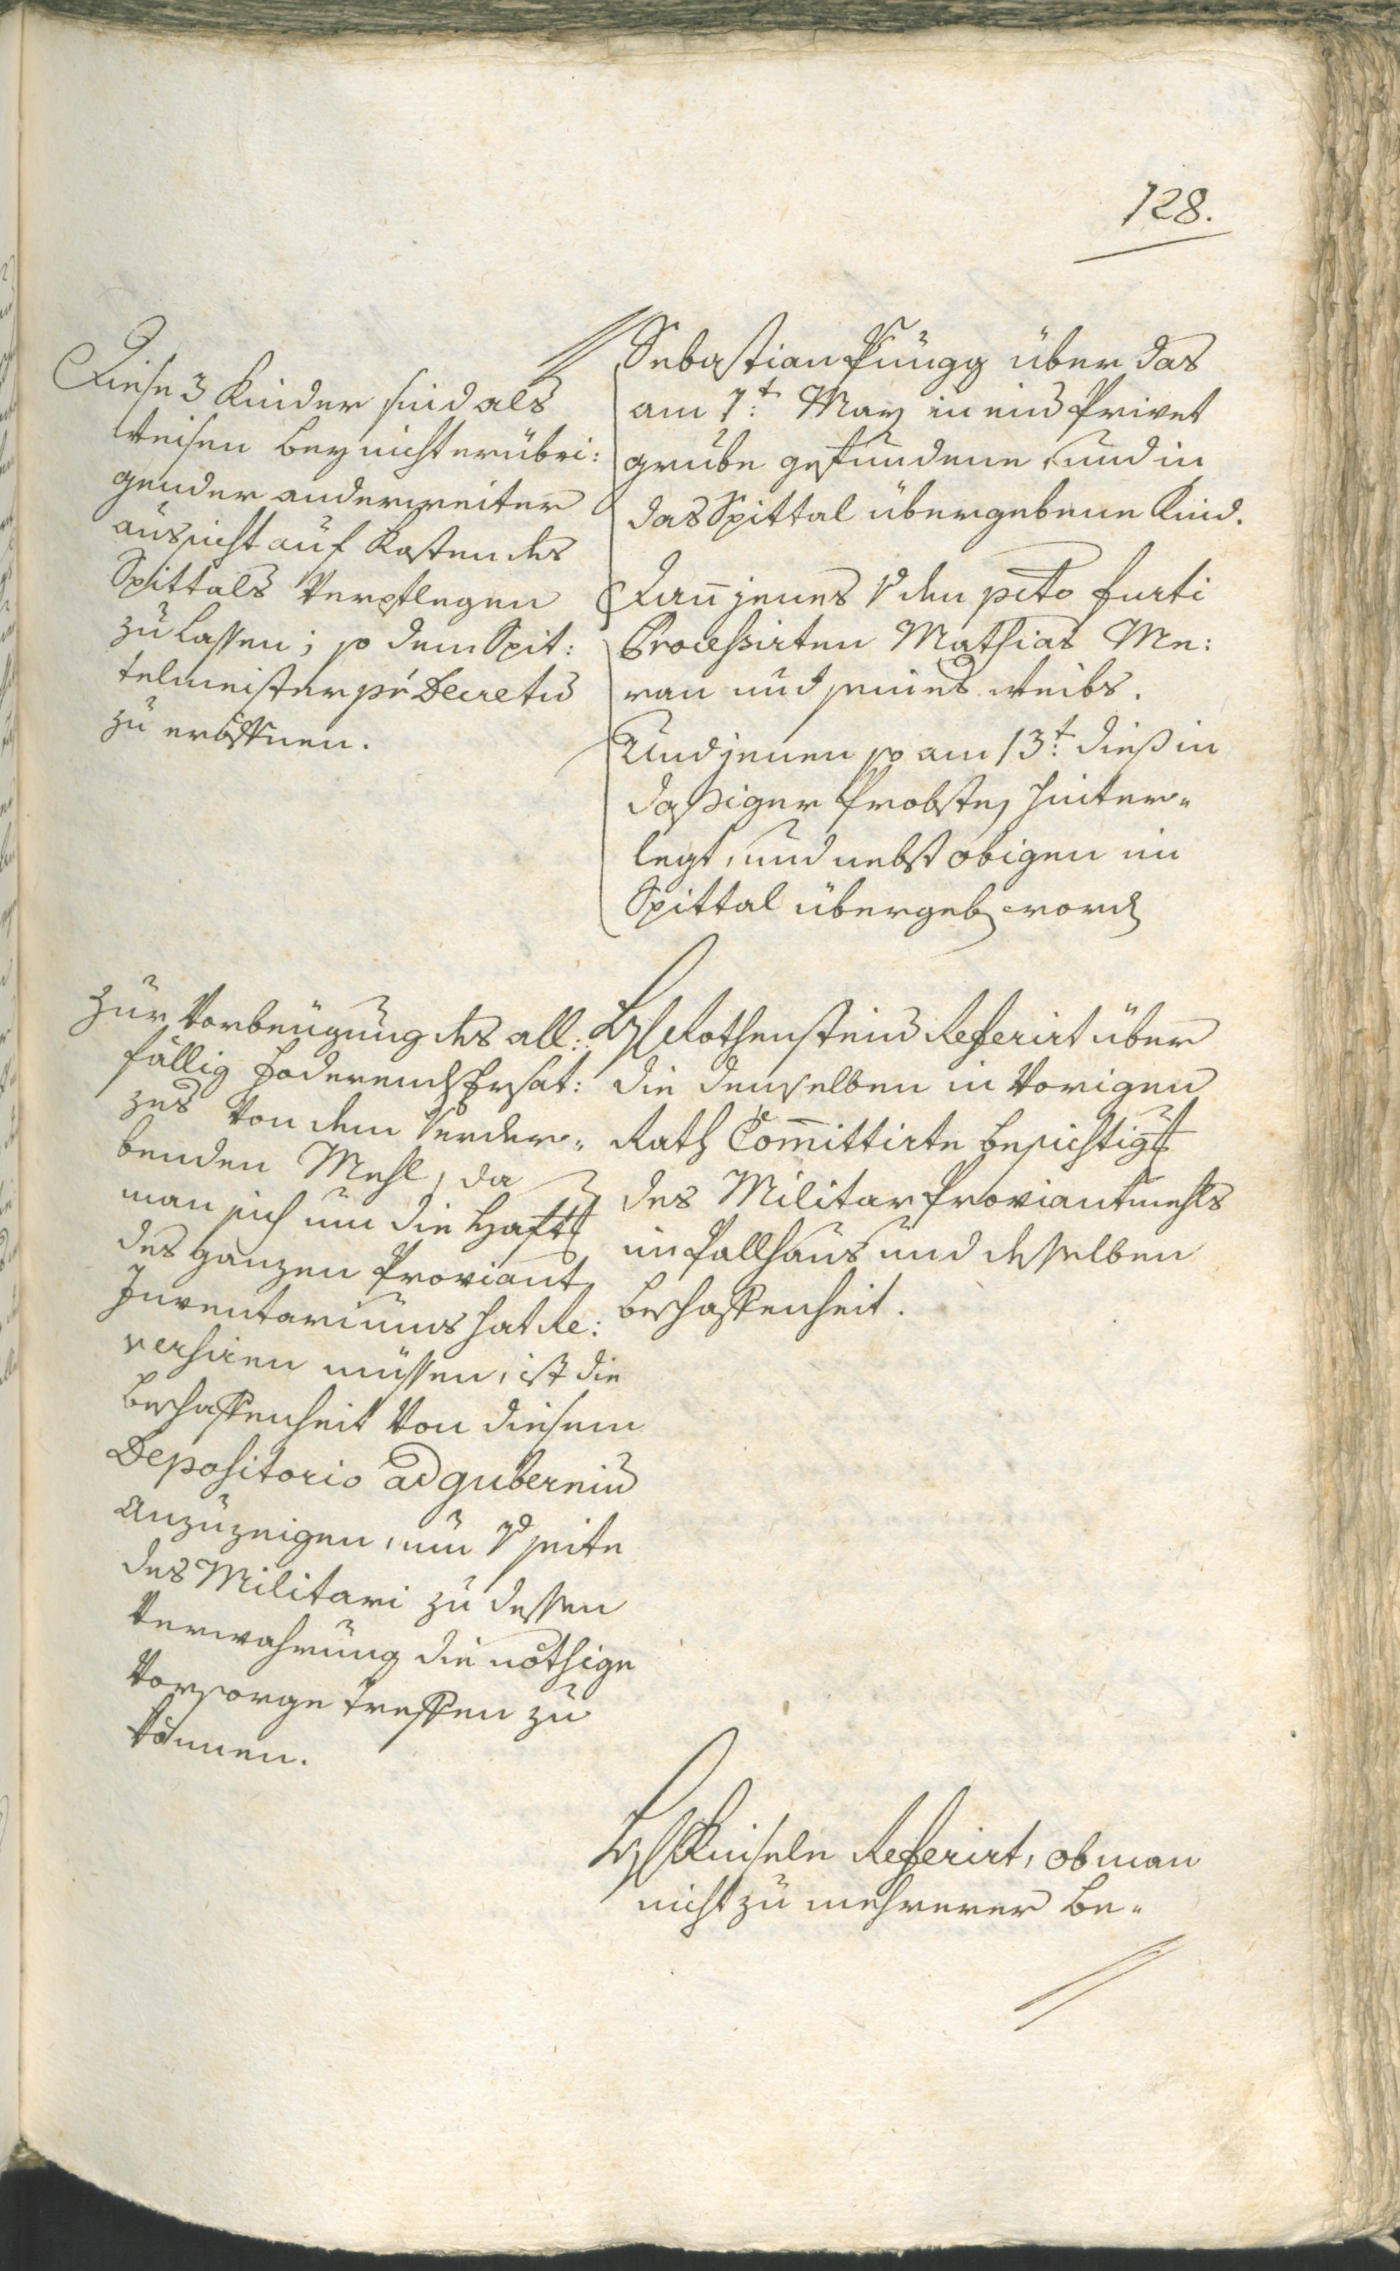 128.
Diese 3 Kinder sind als
Weisen bey nicht erübri:
gender anderweiter
aussicht auf Kosten des
Spittals Verpflegen
zu lassen; so dem Spit:
telmeister per Decretum
zu eröffnen.
Sebastian Püngg über das
am 7t: May in eine Privet
grube gefundene, und in
das Spittal übergebene Kind.
Dann jenes von den pcto furti
Processirten Mathias Me:
ran und seines Weibs.
Und jenen so am 13t: dieß in
dasiger Probstey hinter„
legt, und nebst obigen im
Spittal übergeben worden
Zur Vorbeugung des all:
fällig foderenden Ersat:
zes Von dem Verder„
benden Mehl, da
man sich um die Haftung
des ganzen Proviant
Inventariums hat Re:
versiren müssen, ist die
beschaffenheit Von diesem
Depositorio ad gubernium
Anzuzeigen, um von seite
des Militari zu dessen
Verwahrung die nöthige
Vorsorge treffen zu
können.
Hr Rothenstein Referirt über
die demselben in Vorigen
Rath Committirte besichtigung
des Militar Proviantmehls
im Pallhaus und desselben
beschaffenheit.
Hr Kuiseln Referirt, ob man
nicht zu mehrerer be„